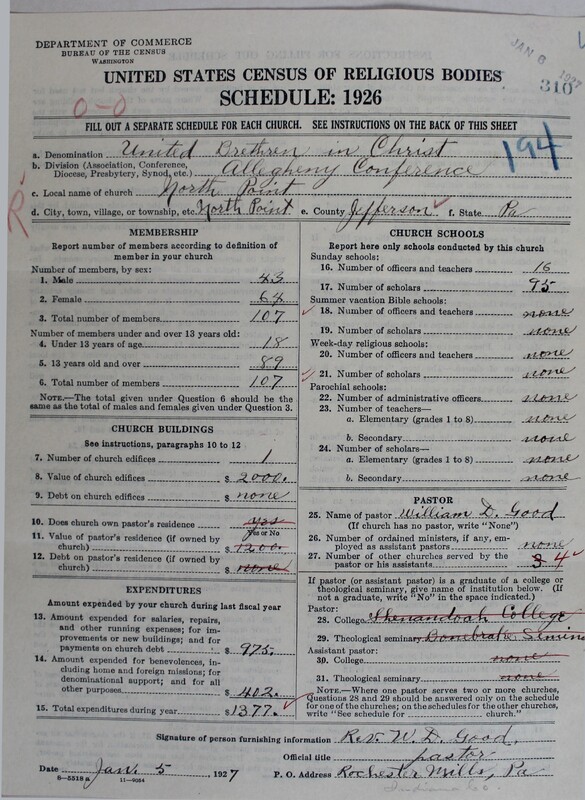 DEPARTMENT OF COMMERCE
BUREAU OF THE CENSUS
WASHINGTON
JAN 6 1927
310
UNITED STATES CENSUS OF RELIGIOUS BODIES
SCHEDULE: 1926
0-0
FILL OUT A SEPARATE SCHEDULE FOR EACH CHURCH. SEE INSTRUCTIONS ON THE BACK OF THIS SHEET
194
a. Denomination United Brethren in Christ
b. Division (Association, Conference, Diocese, Presbytery, Synod, etc.) Allegheny Conference
c. Local name of church North Point
d. City, town, village, or township, etc. North Point e. County Jefferson f. State Pa
R
MEMBERSHIP
Report number of members according to definition of
member in your church
Number of members, by sex:
1. Male 43
2. Female 64
3. Total number of members 107
Number of members under and over 13 years old:
4. Under 13 years of age 18
5. 13 years old and over 89
6. Total number of members 107
NOTE.—The total given under Question 6 should be
same as the total of males and females given under Question 3.
CHURCH BUILDINGS
See instructions, paragraphs 10 to 12
7. Number of church edifices 1
8. Value of church edifices $ 2000.
9. Debt on church edifices $ none
10. Does church own pastor's residence yes
Yes or No
11. Value of pastor's residence (if owned by
church) $ 1200.
12. Debt on pastor's residence (if owned by
church) $ none
EXPENDITURES
Amount expended by your church during last fiscal year
13. Amount expended for salaries, repairs,
and other running expenses; for im-
provements or new buildings; and for
payments on church debt $ 975.
14. Amount expended for benevolences, in-
cluding home and foreign missions; for
denominational support; and for all
other purposes $ 402.
15. Total expenditures during year $ 1377.
CHURCH SCHOOLS
Report here only schools conducted by this church
Sunday schools:
16. Number of officers and teachers 16
17. Number of scholars 95
Summer vacation Bible schools:
18. Number of officers and teachers none
19. Number of scholars none
Week-day religious schools:
20. Number of officers and teachers none
21. Number of scholars none
Parochial schools:
22. Number of administrative officers none
23. Number of teachers—
a. Elementary (grades 1 to 8) none
b. Secondary none
24. Number of scholars—
a. Elementary (grades 1 to 8) none
b. Secondary none
PASTOR
25. Name of pastor William D. Good
(If church has no pastor, write "None")
26. Number of ordained ministers, if any, em-
ployed as assistant pastors none
27. Number of other churches served by the
pastor or his assistants 3 4
If pastor (or assistant pastor) is a graduate of a college or
theological seminary, give name of institution below. (If
not a graduate, write "No" in the space indicated.)
Pastor:
28. College Shenandoah College
29. Theological seminary Bonebrake Semina
Assistant pastor:
30. College none
31. Theological seminary none
NOTE.—Where one pastor serves two or more churches,
Questions 28 and 29 should be answered only on the schedule
for one of the churches; on the schedules for the other churches,
write "See schedule for church."
Signature of person furnishing information Rev. W. D. Good,
Official title pastor
Date Jan. 5 1927 P. O. Address Rochester Mills, Pa
8-5518a 11-9054
Indiana Co.